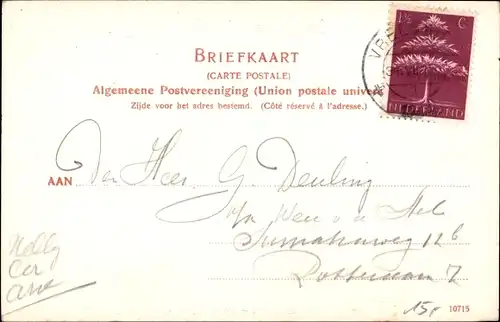 BRIEFKAART
(CARTE POSTALE)
Algemeene Postvereeniging (Union postale univer
Zijde voor het adres bestemd. (Côté réservé à l'adresse.)
1½ C.
NEDERLAND
AAN Den Heer G. Deuling
p/a Wed. v. d.
Sumatraweg 12b
Rotterdam Z
Nelly
Cor
15,-
10715